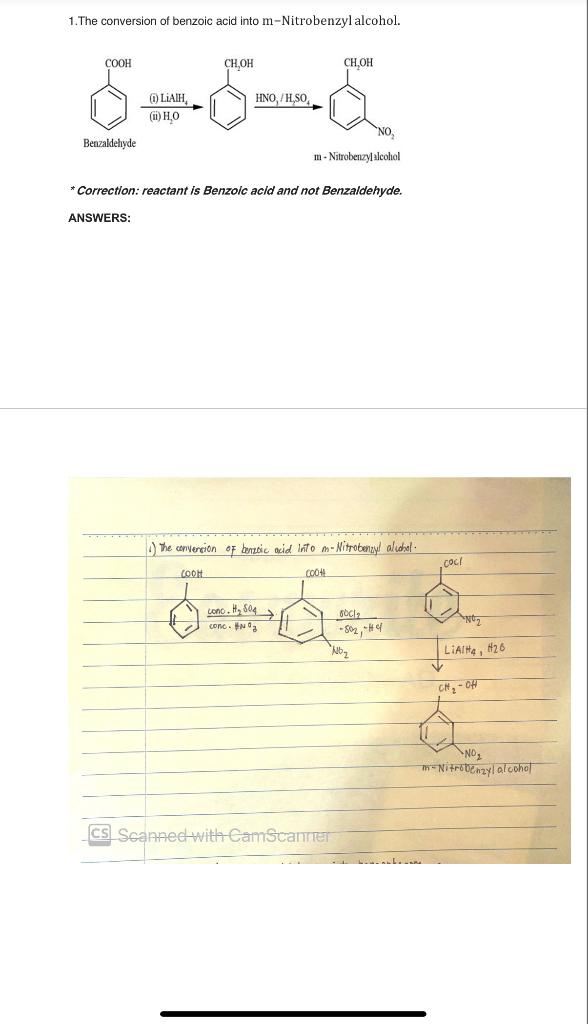 1.The conversion of benzoic acid into m-Nitrobenzyl alcohol.
COOH CH₂OH CH₂OH
(i) LiAlH₄ HNO₃/H₂SO₄
(ii) H₂O
NO₂
Benzaldehyde
m - Nitrobenzyl alcohol
* Correction: reactant is Benzoic acid and not Benzaldehyde.
ANSWERS:
1.) The convercion of benzoic acid into m-Nitrobenzyl alcohol.
COOH COOH COCl
conc. H₂SO₄ SOCl₂ NO₂
conc. HNO₃ -SO₂, -HCl
NO₂ LiAlH₄, H₂O
CH₂-OH
NO₂
m-Nitrobenzyl alcohol
CS Scanned with CamScanner